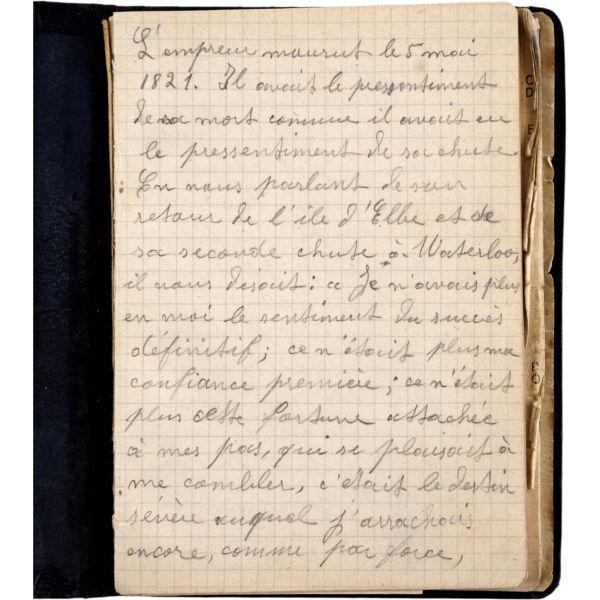 L'empreur mourut le 5 mai
1821. Il avait le pressentiment
de sa mort comme il avait eu
le pressentiment de sa chute.
En nous parlant de son
retour de l'île d'Elbe et de
sa seconde chute à Waterloo,
il nous disait : « Je n'avais plus
en moi le sentiment du succès
définitif ; ce n'était plus ma
confiance première ; ce n'était
plus cette fortune attachée
à mes pas, qui se plaisait à
me combler, c'était le destin
sévère auquel j'arrachais
encore, comme par force,
C
D
E